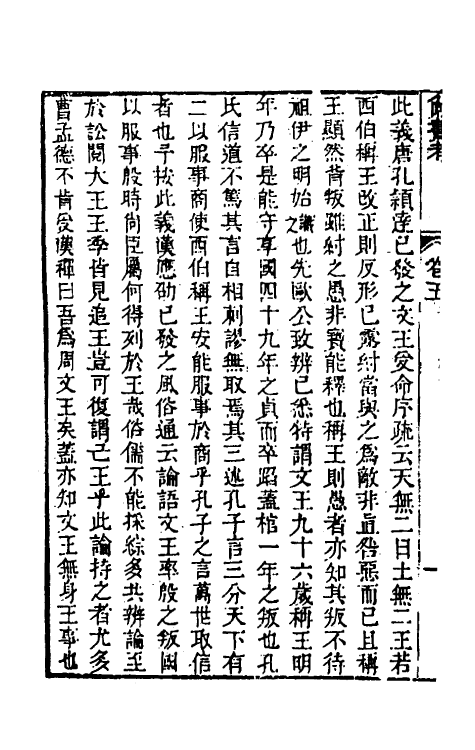 此義唐孔穎達已發之文王受命序疏云天無二日土無二王若
西伯稱王改正則反形已露紂當與之為敵非直咎惡而已且稱
王顯然背叛雖紂之愚非寶能釋也稱王則愚者亦知其叛不待
祖伊之明始識之也先歐公致辨已悉特謂文王九十六歲稱王明
年乃卒是能守享國四十九年之貞而卒蹈蓋棺一年之叛也孔
氏信道不篤其言自相刺謬無取焉其三述孔子言三分天下有
二以服事商使西伯稱王安能服事於商乎孔子之言萬世取信
者也予按此義漢應劭已發之風俗通云論語文王率殷之叛國
以服事殷時尚臣屬何得列於王哉俗儒不能採綜多共辨論至
於訟鬩大王王季皆見追王豈可復謂已王乎此論持之者尤多
曹孟德不肯受漢禪曰吾為周文王矣蓋亦知文王無身王事也
卷五
一